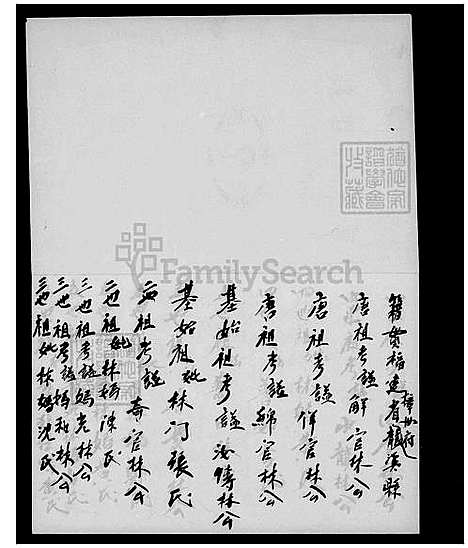 籍貫福建省漳州府龍溪縣
唐祖考謚解官林公
唐祖考謚佯官林公
唐祖考謚綿官林公
基始祖考謚汝傳林公
基始祖妣林门張氏
二世祖考謚奇官林公
二世祖妣林媽陳氏
三世祖考謚媽老林公
三世祖考謚媽 林公
三世祖妣林媽沈氏
FamilySearch